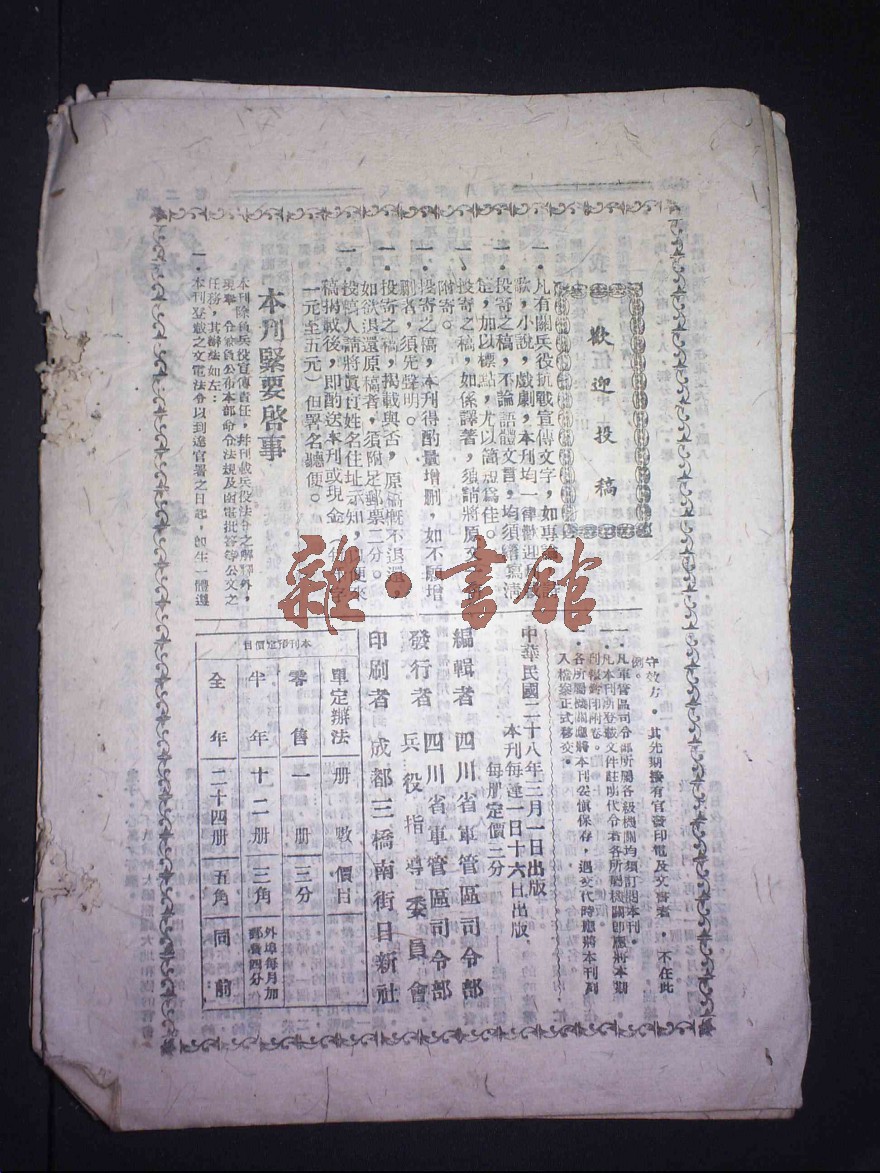 歡迎投稿
一．凡有關兵役抗戰宣傳文字，如專論
歌，小說，戲劇，本刊均一律歡迎
一．投寄之稿，不論語體文言，均須繕寫清
楚，加以標點，尤以簡短爲佳。
一．投寄之稿，如係譯著，須請將原文
附寄。
一．投寄之稿，本刊得酌量增删，如不願增
删者，須先聲明。
一．投寄之稿，揭載與否，原稿概不退還，
如欲退還原稿者，須附足郵票二分。
一．投稿人請將眞實姓名住址示知，以便來
稿揭載後，即酌送本刊或現金
一元至五元）但署名聽便。
本刊緊要啓事
本刊除負兵役宣傳責任，幷刊載兵役法令之解釋外，
現奉令兼負公布本部命令法規及函電批答等公文之
任務，其辦法如左：
一．本刊登載之文電法令以到達官署之日起，卽生一體遵
守效力，其先期接有官發印電及文書者，不在此
例。
一．凡軍管區司令部所屬各級機關均須訂閱本刊。
一．凡本刊所登載文件註明代令者各所屬機關卽應將本期
刊報
各所屬機關應將本刊妥愼保存，遇交代時應將本刊列
入檔案正式移交。
中華民國二十八年三月一日出版
本刊每逢一日十六日出版、
每册定價三分
編輯者 四川省軍管區司令部
發行者 四川省軍管區司令部
兵役指導委員會
印刷者 成都三橋南街日新社
本刊預定價目
單定辦法 册數 價目
零售 一册 三分
半年 十二册 三角 外埠每月加
郵費四分
全年 二十四册 五角 同前
雜·書館